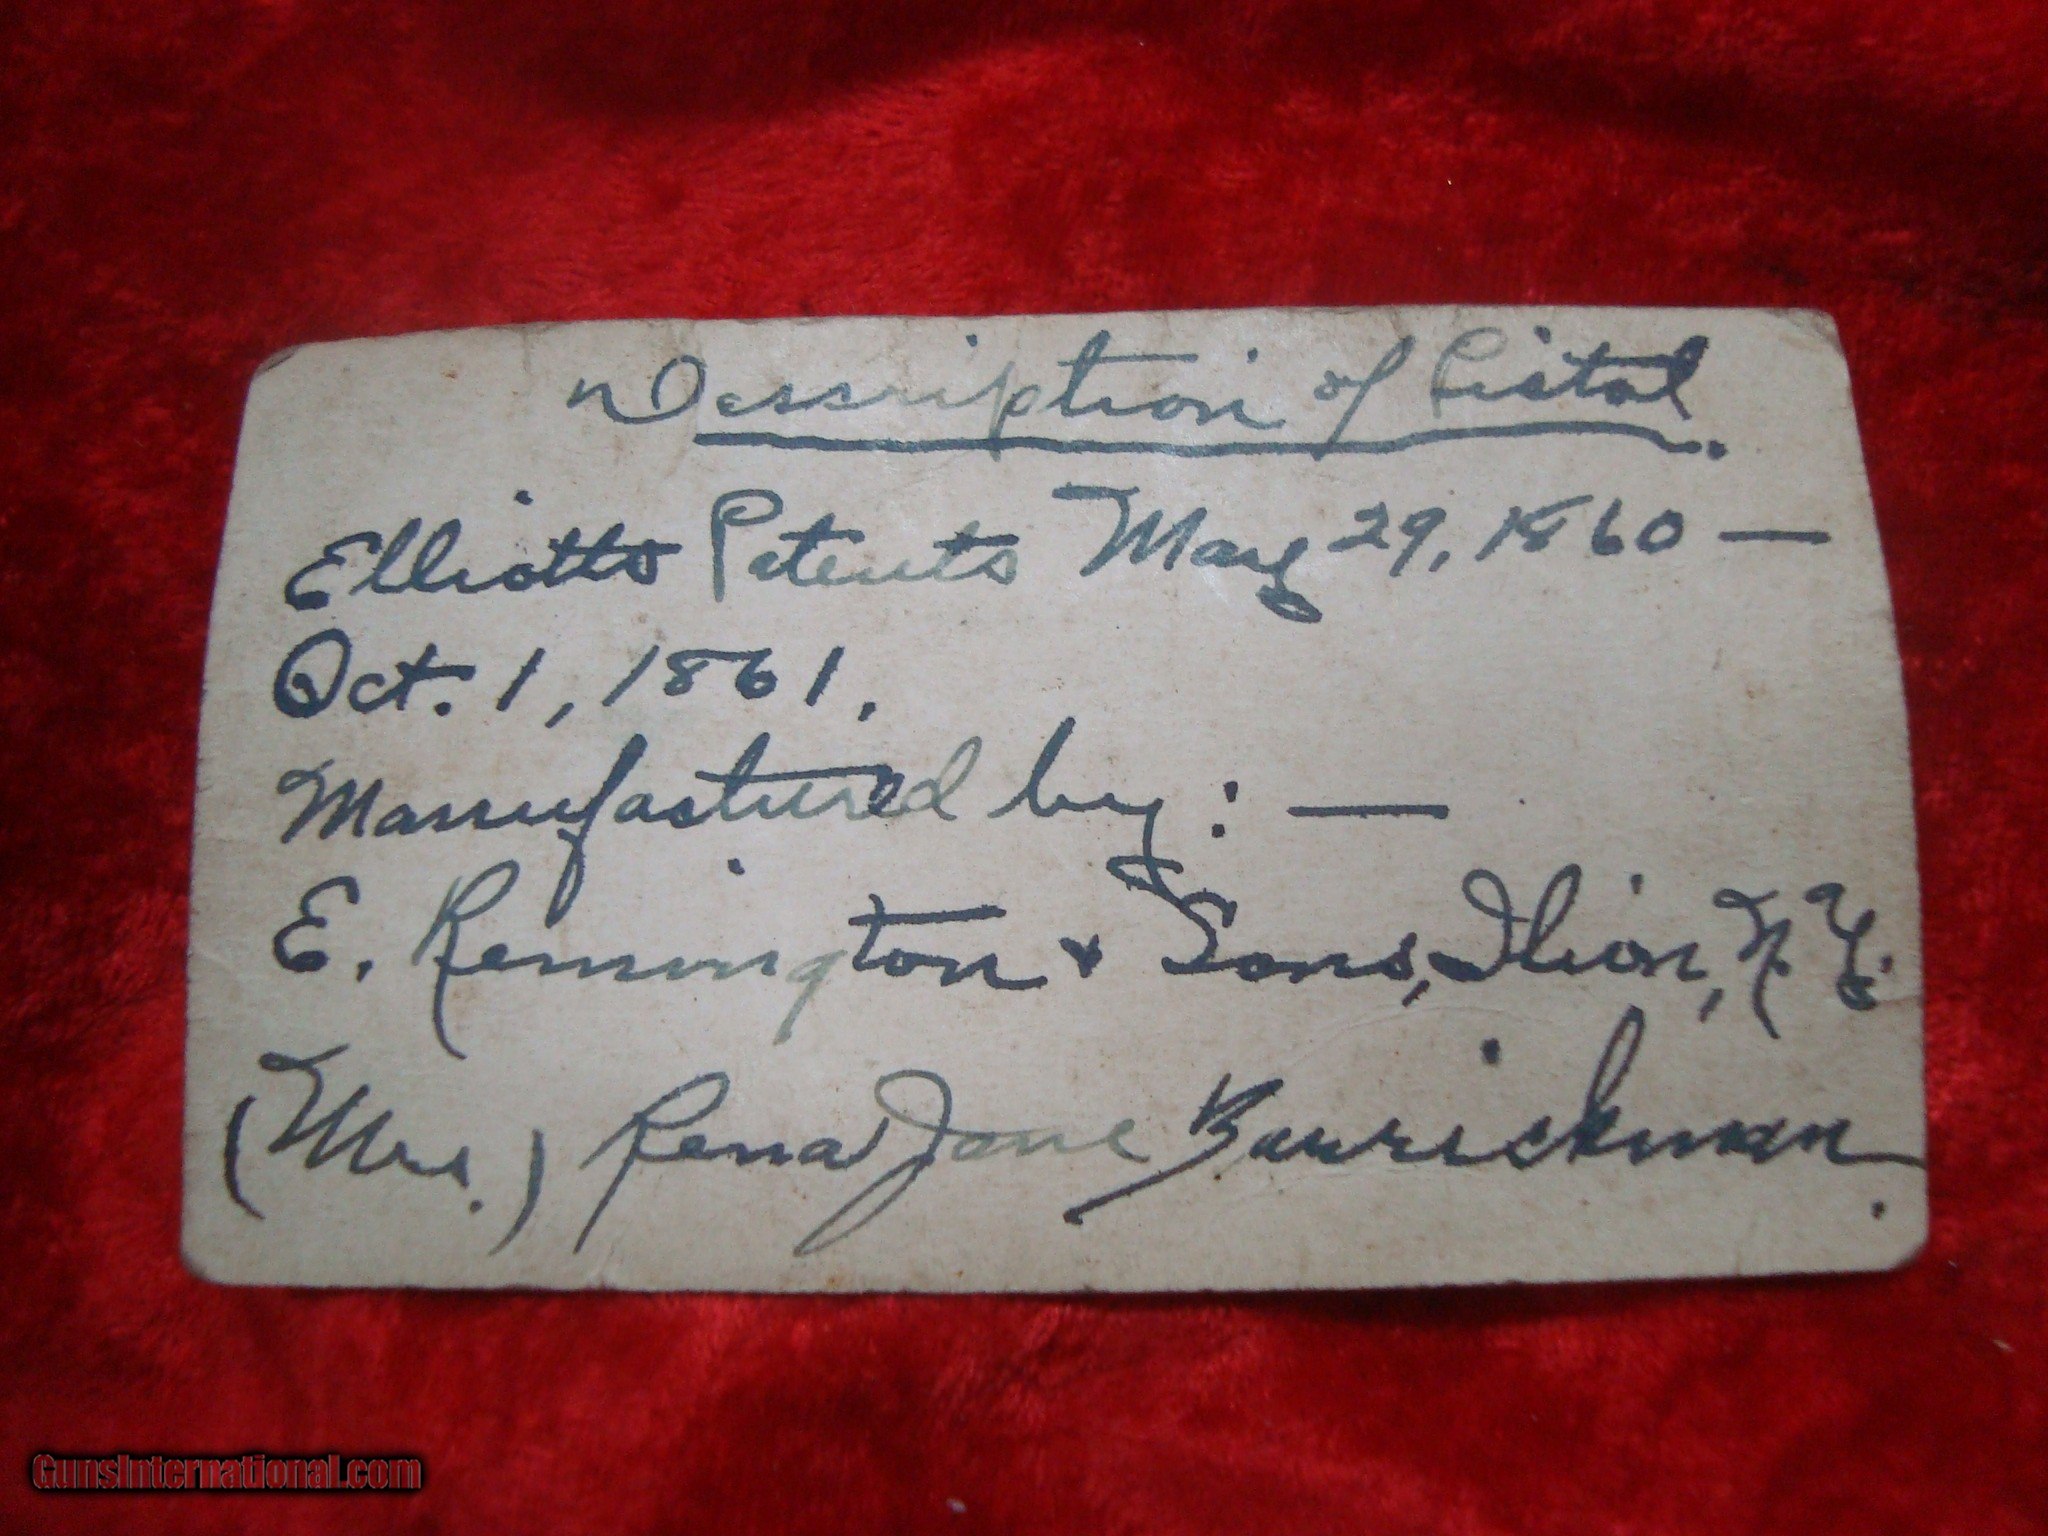 Description of Pistol.
Elliotts Patents May 29, 1860 —
Oct. 1, 1861.
Manufactured by : —
E. Remington & Sons, Ilion, N.Y.
(Mrs.) Rena Jane Barrickman.
GunsInternational.com